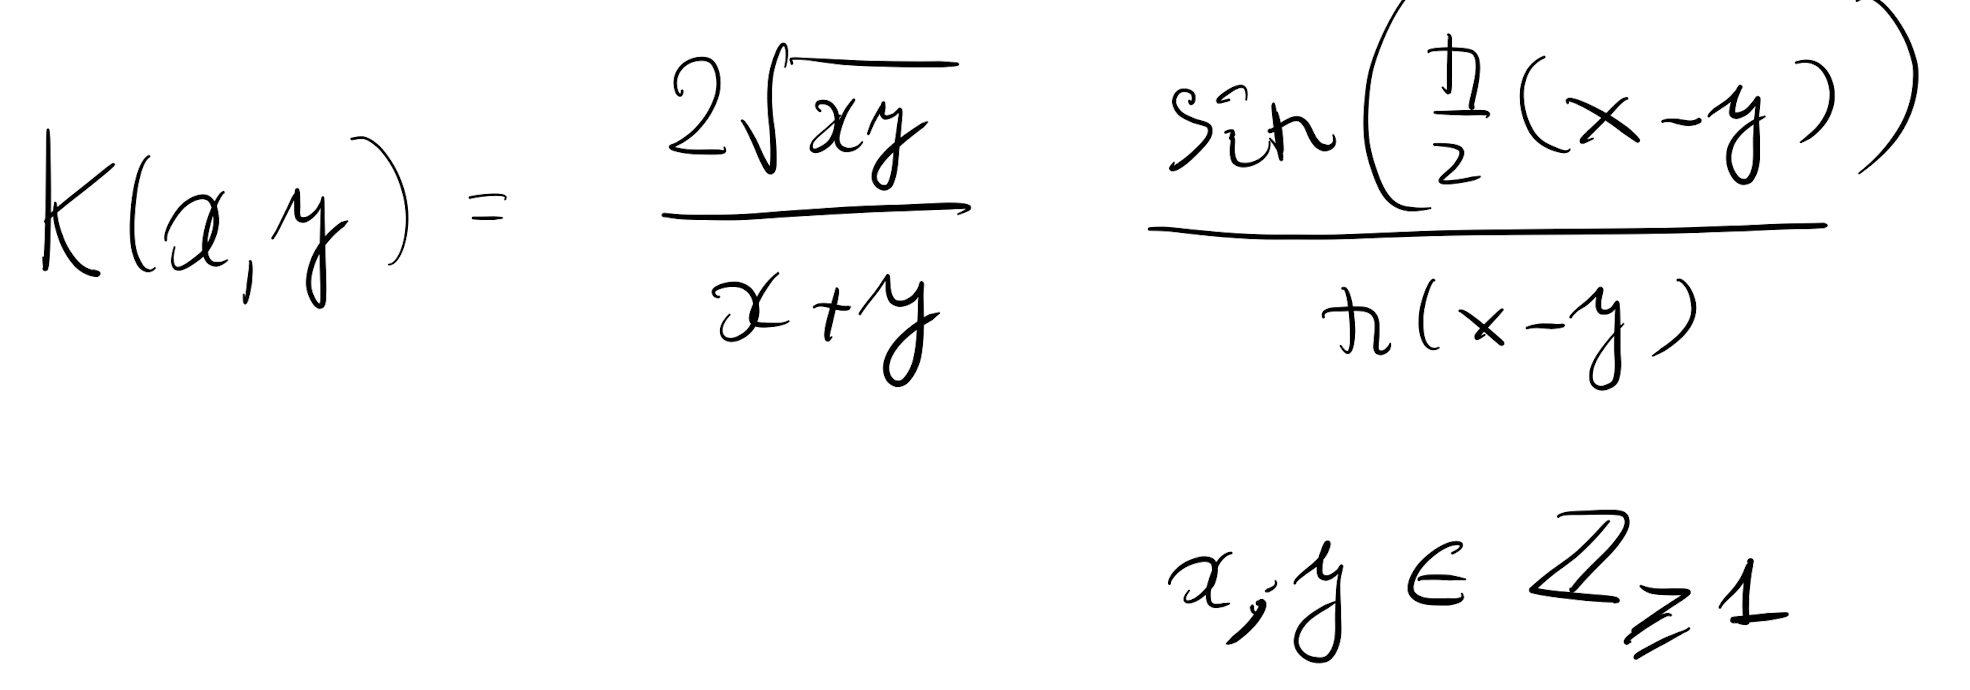 K(x,y) = \frac{2\sqrt{xy}}{x+y} \frac{\sin\left(\frac{π}{2}(x-y)\right)}{π(x-y)}
x,y ∈ ℤ_{≥1}